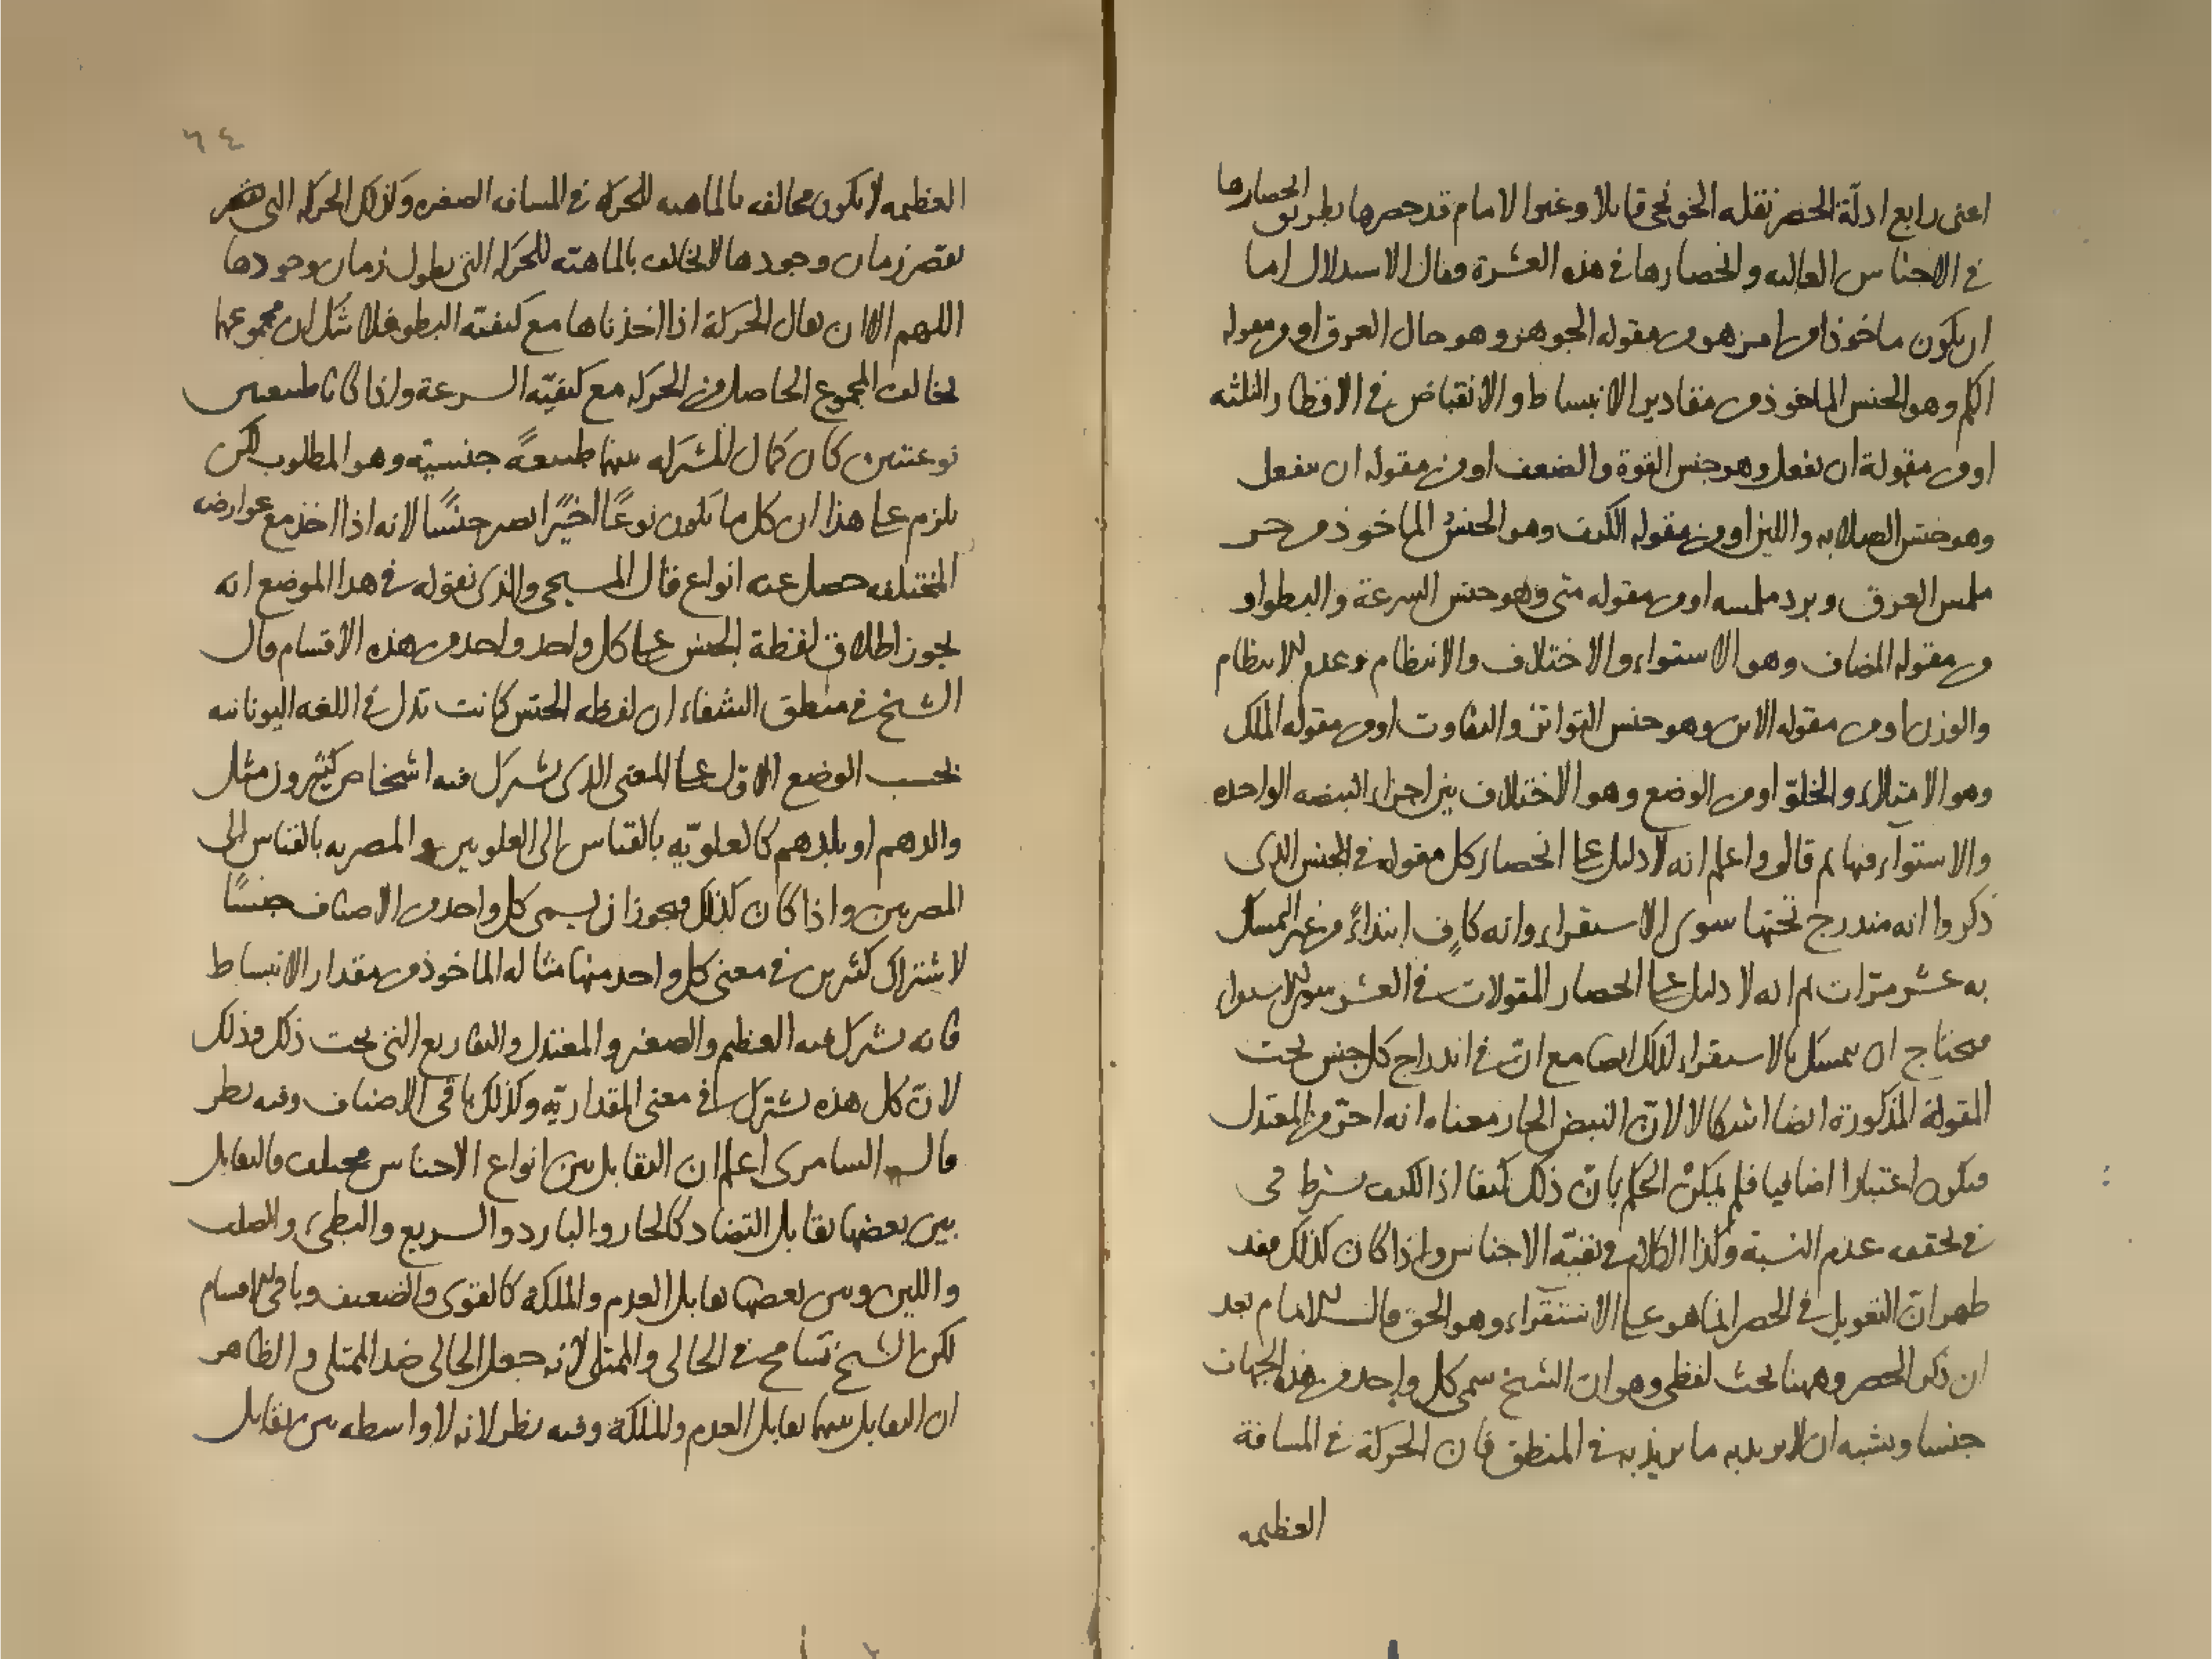 اعنى رابع ادلّة الحصر نقله الخونجى قايلا وغير الامام قد حصرها بطريق انحصارها
فى الاجناس العاليه وانحصارها فى هذه العشرة وقال الاستدلال اما
ان يكون ماخوذا من امر هو من مقوله الجوهر وهو حال العرق او من مقوله
الكم وهو الجنس الماخوذ من مقادير الانبساط والانقباض فى الاقطار الثلثه
او من مقولة ان يفعل وهو جنس القوة والضعف او من مقوله ان ينفعل
وهو جنس الصلابه واللين او من مقوله الكيف وهو الجنس الماخوذ من حر
ملمس العرق وبرد ملمسه او من مقوله متى وهو جنس السرعة والبطو او
من مقوله المضاف وهو الاستواء والاختلاف والانتظام وعدم الانتظام
والوزن او من مقوله الاين وهو جنس التواتر والتفاوت او من مقوله الملك
وهو الامتلاء والخلوّ او من الوضع وهو الاختلاف بين اجزاء النبضه الواحده
والاستوآء فيها ثم قال واعلم انه لا دليل على انحصار كل مقوله فى الجنس الذى
ذكروا انه مندرج تحتها سوى الاستقراء وانه كافٍ ابتداءً من غير التمسك
به عشر مرّات ثم انه لا دليل على انحصار المقولات فى العشر سوى الاستقراء
فيحتاج ان يتمسك بالاستقراء لذلك ايضا مع انّ فى اندراج كل جنس تحت
المقولة المذكورة ايضا اشكالا لانّ النبض الحار معناه انه احرّ من المعتدل
فيكون اعتبارا اضافيا فلم يمكن الحكم بانّ ذلك كيفا اذ الكيف يشرط
فى تحققه عدم النسبة وكذا الكلام فى بقيّة الاجناس واذا كان كذلك فقد
ظهر انّ التعويل فى الحصر انما هو على الاستقراء وهو الحق قال الامام بعد
ان ذكر الحصر وههنا بحث لفظى وهو ان الشيخ سمى كل واحد من هذه الجهات
جنسا ويشبه ان لا يريد به ما يريد به فى المنطق فان الحركة فى المسافة
العظيمه
٦٤
العظيمه لا يكون مخالفه بالماهيه للحركة فى المسافه الصغيره وكذلك الحركه التى
يقصر زمان وجودها لا يخالف بالماهيّه للحركه التى يطول زمان وجودها
اللهم الا ان يقال الحركة اذا اخذناها مع كيفيّه البطو فلا شك ان مجموعها
يخالف المجموع الحاصل من الحركه مع كيفيّه السرعة واذا كانا طبيعتين
نوعيتين كان كمال المشترك بينهما طبيعهً جنسيّه وهو المطلوب لكن
يلزم على هذا ان كل ما يكون نوعًا اخيرًا يصير جنسًا لانه اذا اخذ مع عوارضه
المختلفه حصل عنه انواع قال المسيحى والذى نقوله فى هذا الموضع انه
يجوز اطلاق لفظة الجنس على كل واحد واحد من هذه الاقسام قال
الشيخ فى منطق الشفاء ان لفظه الجنس كانت تدل فى اللغه اليونانيه
بحسب الوضع الاوّل على المعنى الذى يشترك فيه اشخاص كثيرون مثل
والدهم او بلدهم كالعلويّه بالقياس الى العلويين والمصريه بالقياس الى
المصريين واذا كان كذلك فيجوز ان يسمى كل واحد من الاصناف جنسًا
لاشتراك كثيرين فى معنى كل واحد منها مثاله الماخوذ من مقدار الانبساط
فانه يشترك فيه العظيم والصغير والمعتدل والتفاريع التى تحت ذلك وذلك
لانّ كل هذه يشترك فى معنى المقداريّه وكذلك باقى الاصناف وفيه نظر
قال السامرى اعلم ان التقابل بين انواع الاجناس مختلف فالتقابل
بين بعضها تقابل التضاد كالحار والبارد والسريع والبطئ والصلب
واللين وبين بعضها تقابل العدم والملكة كالقوى والضعيف وباقى الاقسام
لكن الشيخ تسامح فى الخالى والممتلى لانه جعل الخالى ضد الممتلى والظاهر
ان التقابل بينهما تقابل العدم والملكة وفيه نظر لانه لا واسطه بين تقابل